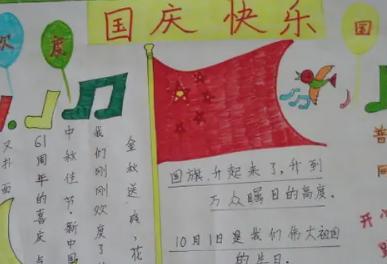 国庆快乐
欢度
国
金秋送爽,花
我们刚刚欢度了
中秋佳节,新中国
61周年的喜庆
又扑面
国旗升起来了,升到
万众瞩目的高度。
10月1日是我们伟大祖国
的生日。
普
同
开心